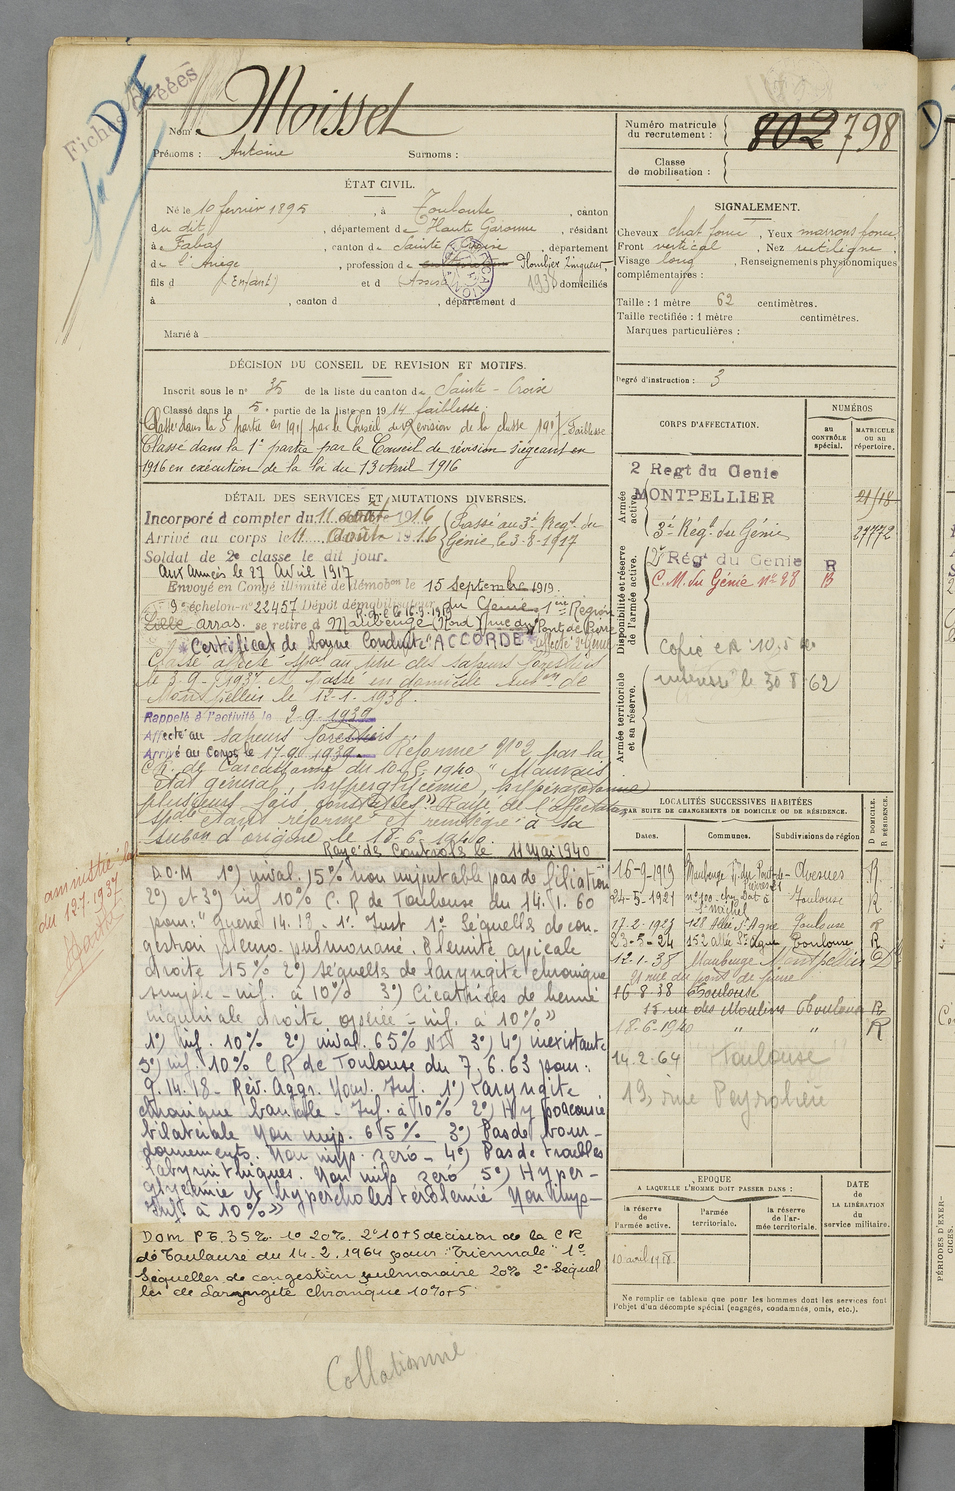 Fiches créées
Nom : Moisset
Prénoms : Antoine Surnoms :
Numéro matricule
du recrutement : 802 798
Classe
de mobilisation :
ÉTAT CIVIL.
Né le 10 fevrier 1895, à Toulouse, canton
du dit, département de Haute Garonne, résidant
à Fabas, canton de Sainte Croix, département
de l'Ariège, profession de Plombier Zingueur,
fils d (Enfant) et d Assisté 1938 domiciliés
à , canton d , département d
Marié à
SIGNALEMENT.
Cheveux chat foncé, Yeux marrons foncé
Front vertical, Nez rectiligne,
Visage long, Renseignements physionomiques
complémentaires :
Taille : 1 mètre 62 centimètres.
Taille rectifiée : 1 mètre centimètres.
Marques particulières :
Degré d'instruction : 3
DÉCISION DU CONSEIL DE REVISION ET MOTIFS.
Inscrit sous le n° 35 de la liste du canton de Sainte-Croix
Classé dans la 5e partie de la liste en 1914 faiblesse.
Classé dans la 5e partie en 1915 par le Conseil de Révision de la classe 1917 - Faiblesse
Classé dans la 1e partie par le Conseil de révision siégeant en
1916 en exécution de la loi du 13 Avril 1916
DÉTAIL DES SERVICES ET MUTATIONS DIVERSES.
Incorporé à compter du 11 août 1916 Passé au 3e Régt du
Arrivé au corps le 11 Août 1916 Génie le 3-8-1917
Soldat de 2e classe le dit jour.
Aux Armées le 27 Avril 1917
Envoyé en Congé illimité de démobon le 15 Septembre 1919.
9e échelon - n° 22457 Dépôt démobilisateur du Génie 1ère Région
Lille arras. se retire à Maubeuge (Nord) rue du Pont de Pierre
Certificat de bonne Conduite "ACCORDÉ" affecté 2e Génie
Classé affecté spal au titre des sapeurs forestiers
le 3-9-1937 et passé en domicile subon de
Montpellier le 12-1-1938.
Rappelé à l'activité le 2-9-1939
Affecté au sapeurs forestiers
Arrivé au Corps le 17.9.1939. Réformé N°2 par la
C.R. de Carcassonne du 10-5-1940 "Mauvais
état général, hyperglycémie, hyperazotémie
plusieurs fois constatées". Rayé de l'affectation
spale étant réformé et réintégré à sa
subon d'origine le 18-6-1940.
Rayé des Contrôles le 11 Mai 1940
amnistié loi
du 12.7.1937
D.O.M 1°) inval. 15% non imputable pas de filiation
2°) et 3°) inf 10% C.R de Toulouse du 14.1.60
pour: "Guerre 14.18. 1e Inst 1° Séquelles de con-
gestion pleuro-pulmonaire. Pleurite apicale
droite 15% 2°) séquelles de laryngite chronique
simple - inf. à 10% 3°) Cicatrices de hernie
inguinale droite opérée - inf. à 10%"
1°) inf. 10% 2°) inval. 65% NI 3°) 4°) inexistante
5°) inf. 10% CR de Toulouse du 7.6.63 pour:
G.14.18 - Rév. Aggr. Nouv. Inf. 1°) Laryngite
chronique banale - Inf. à 10% 2°) Hypoacousie
bilatérale Non imp. 65% 3°) Pas de bour-
donnements. Non imp. zéro - 4°) Pas de troubles
labyrinthiques. Non imp zéro 5°) Hyper-
glycémie et hypercholestérolémie Non imp -
Inf à 10%"
DOM PT. 35%. 1° 20% 2° 10+5 décision de la CR
de Toulouse du 14.2.1964 pour "Triennale" 1°
Séquelles de congestion pulmonaire 20% 2° Séquel
les de Laryngite Chronique 10%+5
Collationné
CORPS D'AFFECTATION.
NUMÉROS
au
CONTRÔLE
spécial.
MATRICULE
ou au
répertoire.
Armée
active.
2 Regt du Genie
MONTPELLIER 21/18
3e Régt du Génie 27772
Disponibilité et réserve
de l'armée active.
2e Régt du Genie R
C.M. du Génie n° 28 R
Copie
intéressé le 30 8 62
Armée territoriale
et sa réserve.
LOCALITÉS SUCCESSIVES HABITÉES
PAR SUITE DE CHANGEMENTS DE DOMICILE OU DE RÉSIDENCE.
Dates. Communes. Subdivisions de région
D DOMICILE.
R RÉSIDENCE.
16-9-1919 Maubeuge r. du Pont de Pierres 21 Avesnes R.
24-5-1921 n° 100 St Michel Toulouse R
17.2-1923 128 Allée St Agne Toulouse
23-5-24 152 allée St Agne Toulouse R
12-1-38 Maubeuge Montpellier
21 rue du pont de pierre
16-8-38 Toulouse
15 rue des Moulins Toulouse R
18-6-1940 " " R
14.2.64 Toulouse
19, rue Peyrolière
EPOQUE
A LAQUELLE L'HOMME DOIT PASSER DANS :
la réserve
de
l'armée active.
l'armée
territoriale.
la réserve
de l'ar-
mée territoriale.
DATE
de
LA LIBÉRATION
du
service militaire.
10 avril 1918
Ne remplir ce tableau que pour les hommes dont les services font
l'objet d'un décompte spécial (engagés, condamnés, omis, etc.).
PÉRIODES D'EXER-
CICES.